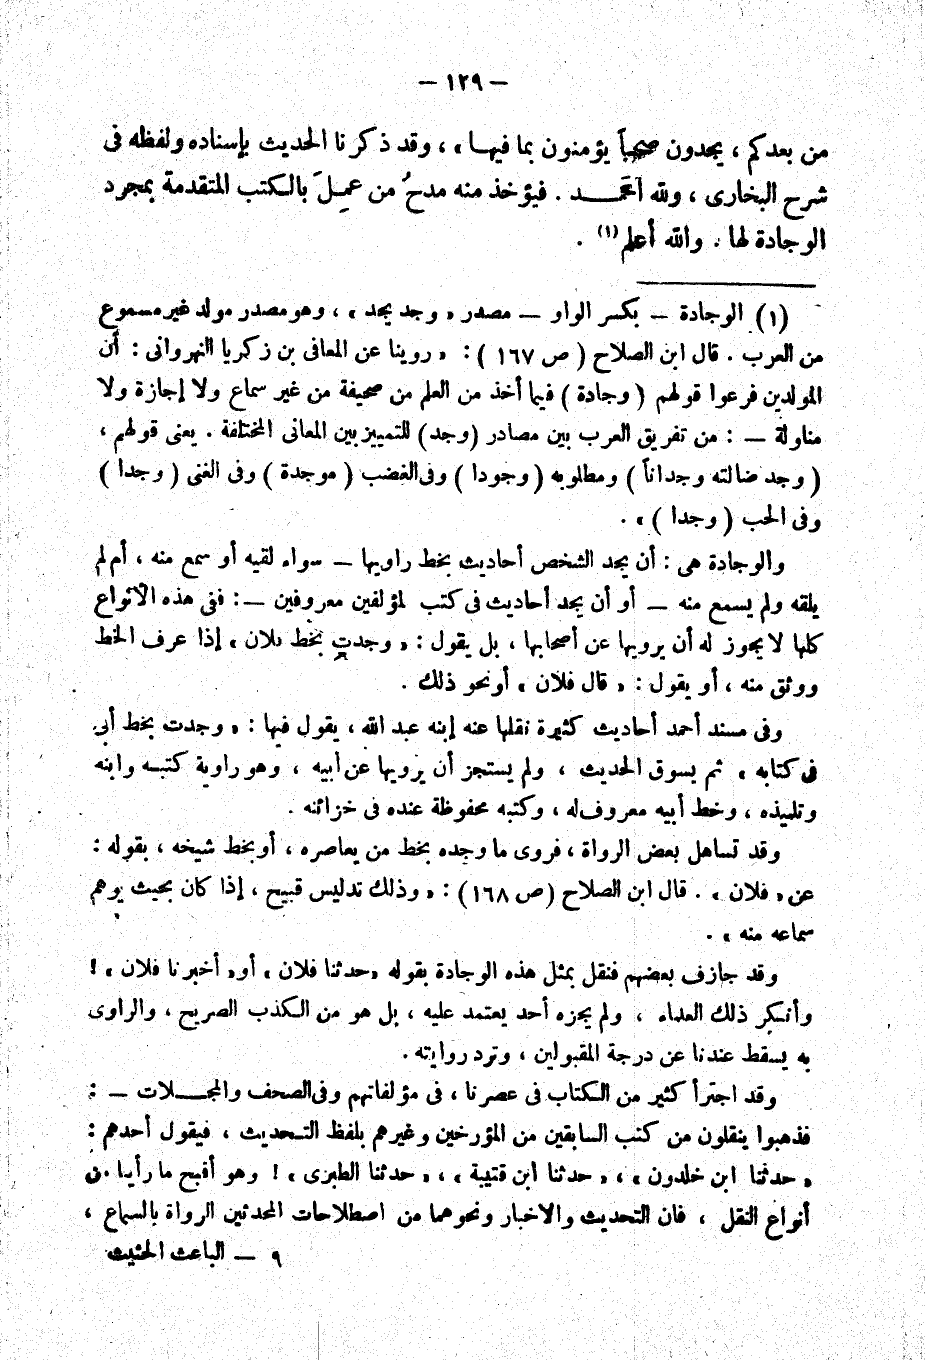 — ١٢٩ —
من بعدكم ، يجدون صحفاً يؤمنون بما فيهـا » ، وقد ذكرنا الحديث بإسناده ولفظه فى
شرح البخارى ، ولله الحمـــد . فيؤخذ منه مدحُ من عمِـلَ بالكتب المتقدمة بمجرد
الوجادة لها . والله أعلم (١) .
(١) الوجادة — بكسر الواو — مصدر « وجد يجد » ، وهو مصدر مولد غير مسموع
من العرب . قال ابن الصلاح ( ص ١٦٧ ) : « روينا عن المعافى بن زكريا النهروانى : أن
المولدين فرعوا قولهم ( وجادة ) فيما أخذ من العلم من صحيفة من غير سماع ولا إجازة ولا
مناولة — : من تفريق العرب بين مصادر (وجد) للتمييز بين المعانى المختلفة . يعنى قولهم ،
( وجد ضالته وجداناً ) ومطلوبه ( وجودا ) وفى الغضب ( موجدة ) وفى الغنى ( وجدا )
وفى الحب ( وجدا ) » .
والوجادة هى : أن يجد الشخص أحاديث بخط راويها — سواء لقيه أو سمع منه ، أم لم
يلقه ولم يسمع منه — أو أن يجد أحاديث فى كتب لمؤلفين معروفين — : ففى هذه الأنواع
كلها لا يجوز له أن يرويها عن أصحابها ، بل يقول : « وجدت بخط فلان » إذا عرف الخط
ووثق منه ، أو يقول : « قال فلان » أو نحو ذلك .
وفى مسند أحمد أحاديث كثيرة نقلها عنه إبنه عبد الله ، يقول فيها : « وجدت بخط أبى
فى كتابه » ثم يسوق الحديث ، ولم يستجز أن يرويها عن أبيه ، وهو راوية كتبـه وابنه
وتلميذه ، وخط أبيه معروف له ، وكتبه محفوظة عنده فى خزائنه .
وقد تساهل بعض الرواة ، فروى ما وجده بخط من يعاصره ، أو بخط شيخه ، بقوله :
عن « فلان » . قال ابن الصلاح (ص ١٦٨) : « وذلك تدليس قبيح ، إذا كان بحيث يوهم
سماعه منه » .
وقد جازف بعضهم فنقل بمثل هذه الوجادة بقوله « حدثنا فلان » أو « أخبرنا فلان » !
وأنكر ذلك العلماء ، ولم يجزه أحد يعتمد عليه ، بل هو من الكذب الصريح ، والراوى
به يسقط عندنا عن درجة المقبولين ، وترد روايته .
وقد اجترأ كثير من الكتاب فى عصرنا ، فى مؤلفاتهم وفى الصحف والمجــلات — :
فذهبوا ينقلون من كتب السابقين من المؤرخين وغيرهم بلفظ التـحديث ، فيقول أحدهم :
« حدثنا ابن خلدون » ، « حدثنا ابن قتيبة » ، « حدثنا الطبرى » ! وهو أقبح ما رأينا من
أنواع النقل ، فان التحديث والاخبار ونحوهما من اصطلاحات المحدثين الرواة بالسماع ،
٩ — الباعث الحثيث